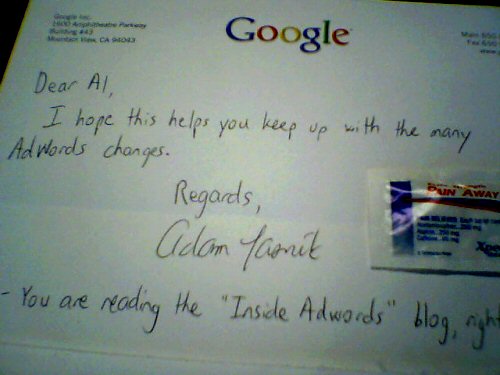 Google Inc.
1600 Amphitheatre Parkway
Building #43
Mountain View, CA 94043
Google
Main 650
Fax 650
Dear Al,
I hope this helps you keep up with the many
AdWords changes.
Regards,
Adam
PAIN AWAY
- You are reading the "Inside Adwords" blog, right